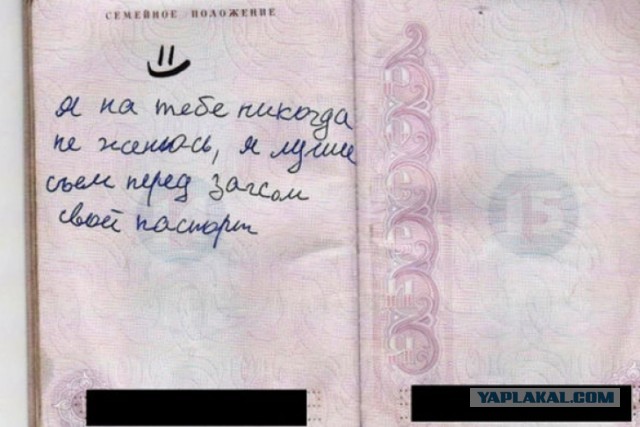 СЕМЕЙНОЕ ПОЛОЖЕНИЕ
я на тебе никогда
не женюсь, я лучше
съем перед загсом
свой паспорт
15
YAPLAKAL.COM